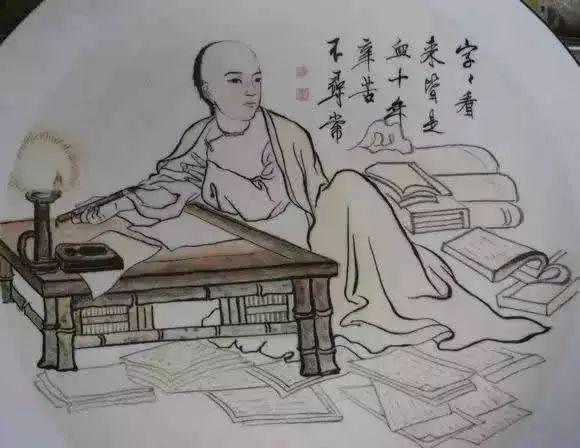 字々看
来皆是
血十年
辛苦
不尋常